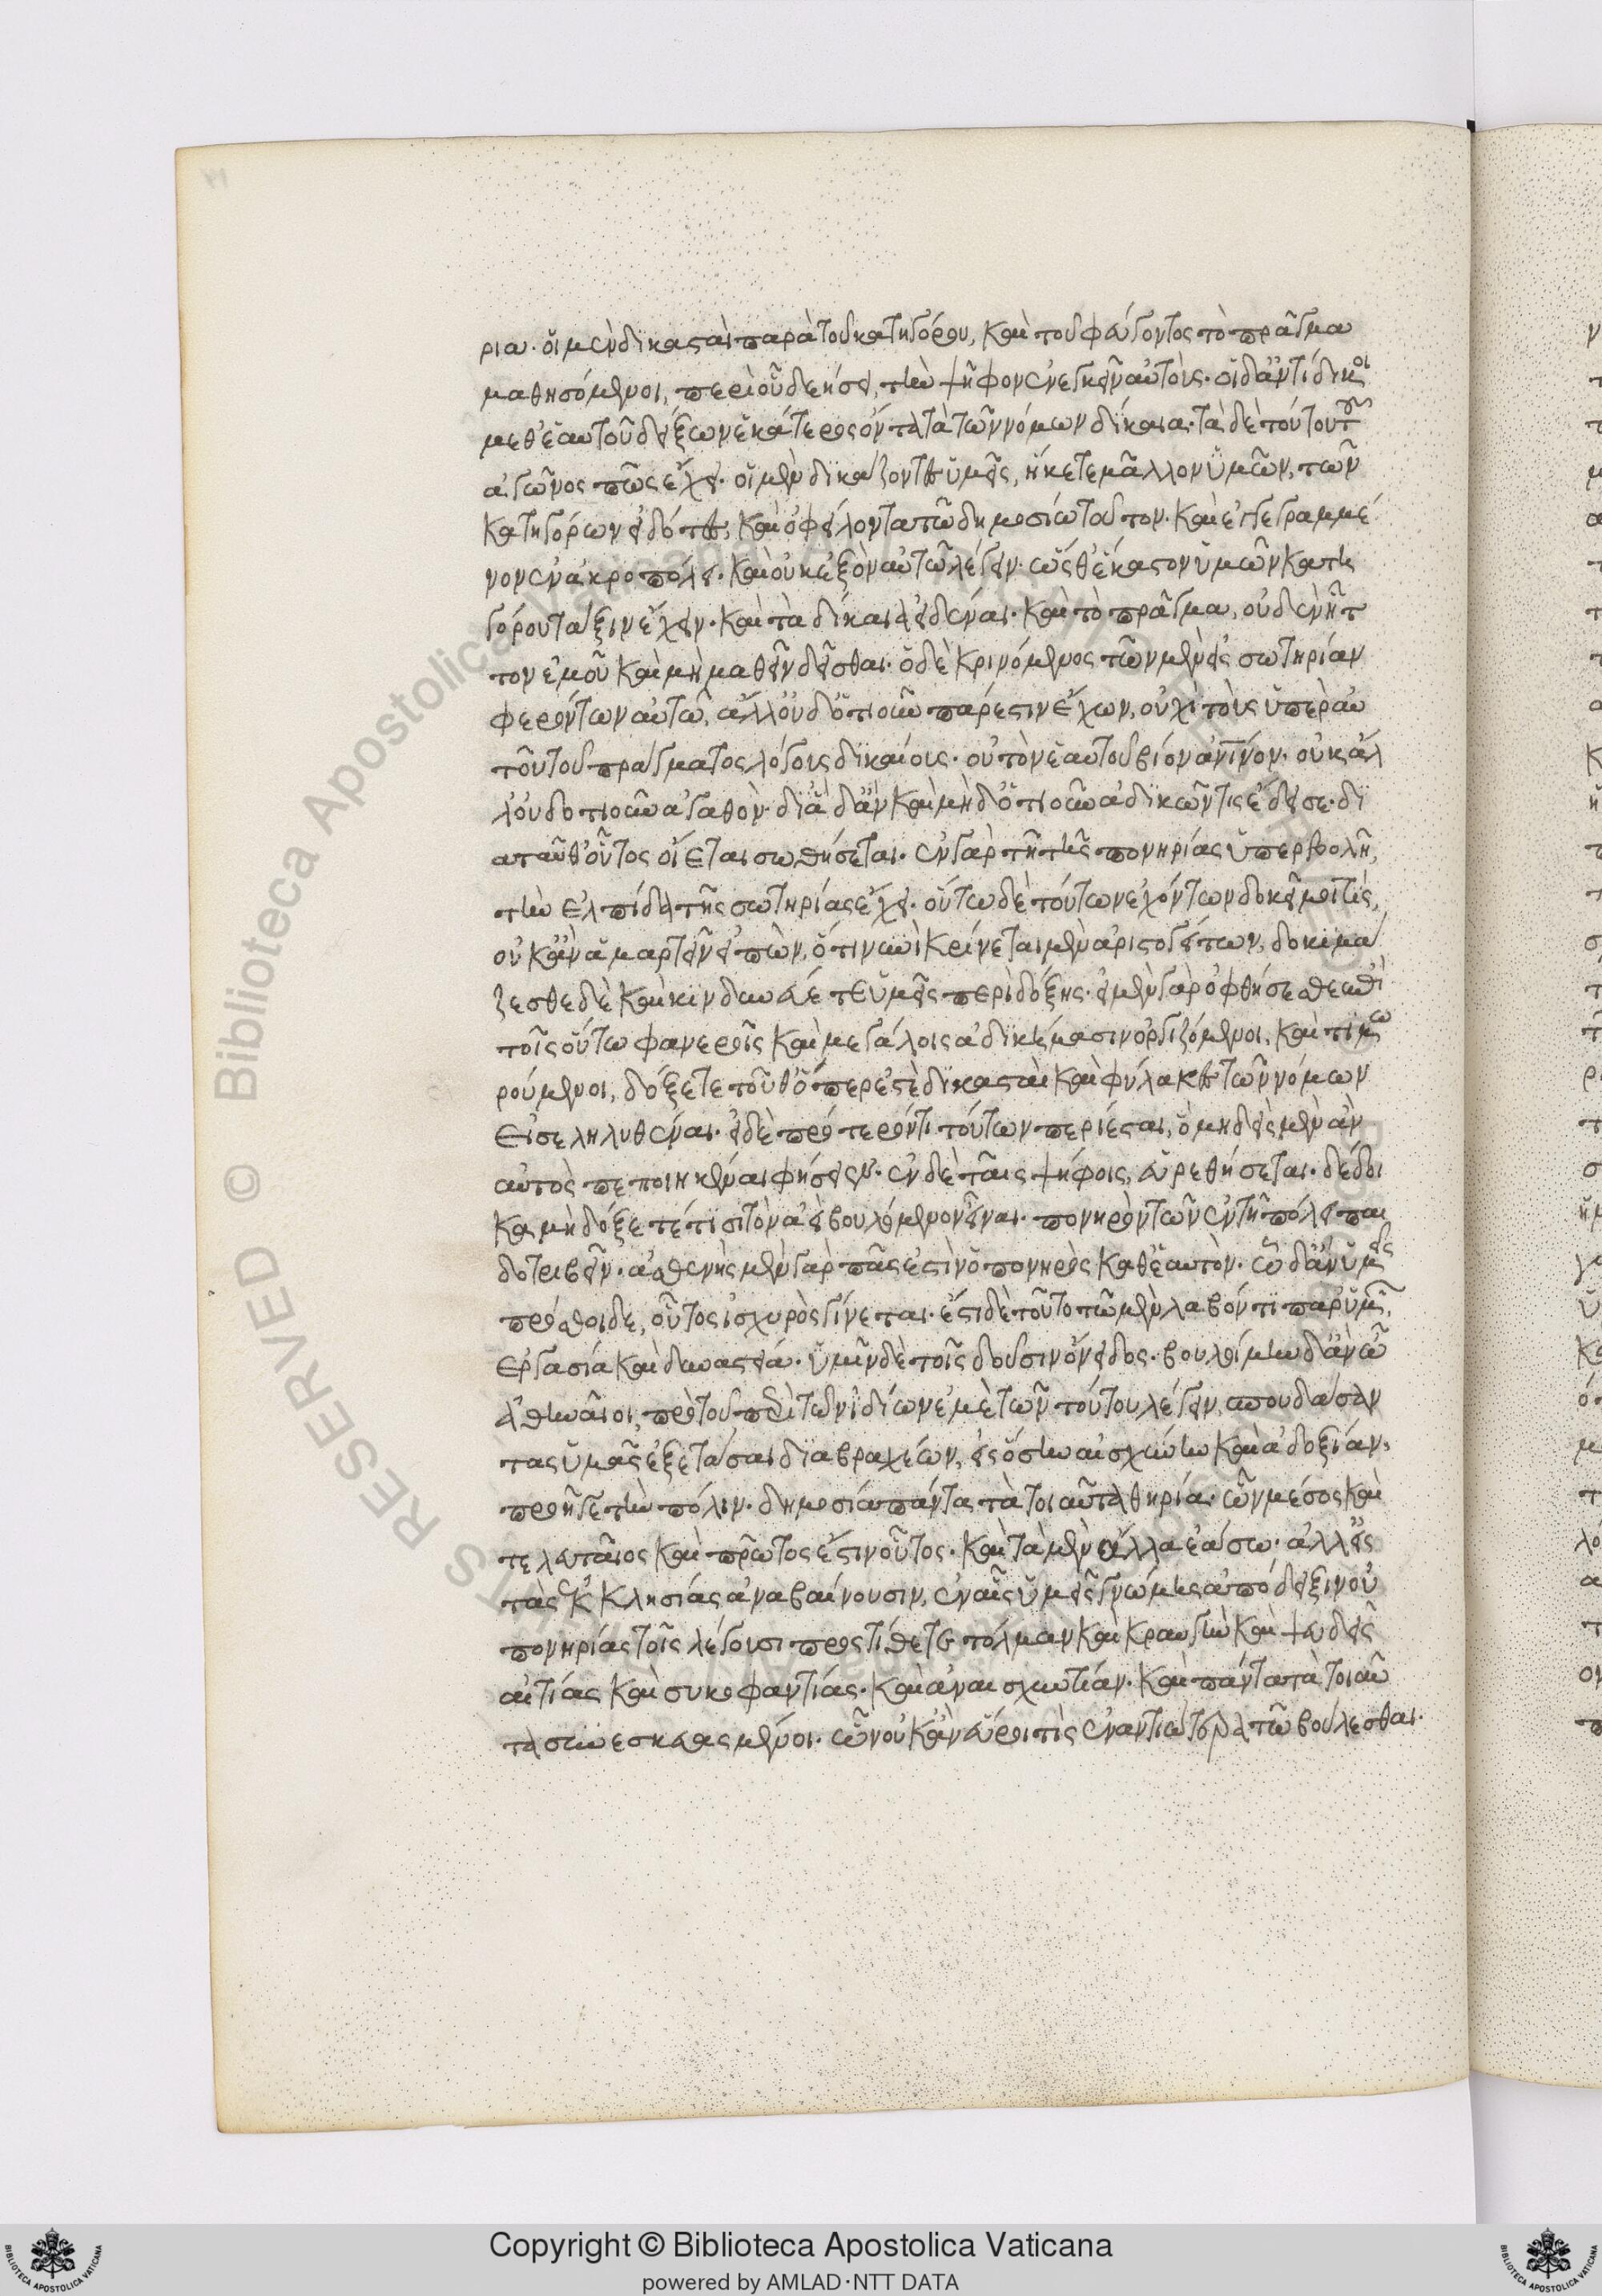 ρια· οἱ μὲν δικασταὶ παρὰ τοῦ κατηγόρου, καὶ τοῦ φεύγοντος τὸ πρᾶγμα
μαθησόμενοι, περὶ οὗ δεήσει, τὴν ψῆφον ἐνεγκεῖν αὐτοὺς· οἱ δ' ἀντίδικοι
μεθ' ἑαυτοῦ δείξων ἑκάτερος ὄντα τὰ τῶν νόμων δίκαια· τὰ δὲ τούτου τοῦ
ἀγῶνος πῶς ἔχει· οἱ μὲν δικάζοντες ὑμεῖς, ἥκετε μᾶλλον ὑμῶν, τῶν
κατηγόρων εἰδότες, καὶ ὀφείλοντα τῷ δημοσίῳ τοῦτον· καὶ ἐγγεγραμμέ
νον ἐν ἀκροπόλει· καὶ οὐκ ἐξὸν αὐτῷ λέγειν· ὥσθ' ἕκαστον ὑμῶν κατη
γόρου τάξιν ἔχειν· καὶ τὰ δίκαια εἰδέναι· καὶ τὸ πρᾶγμα, οὐδὲν ἧττ
τον ἐμοῦ καὶ μὴ μαθεῖν δεῖσθαι· ὁ δὲ κρινόμενος τῶν μὲν εἰς σωτηρίαν
φερόντων αὐτῷ, ἀλλ' οὐδ' ὁτιοῦν πάρεστιν ἔχων, οὐχὶ τοὺς ὑπὲρ αὐ
τοῦ τοῦ πράγματος λόγους δικαίους· οὐ τὸν ἑαυτοῦ βίον ἀνθρώπινον· οὐκ ἄλ
λ' οὐδ' ὁτιοῦν ἀγαθὸν· δι' ἃ δ' ἂν καὶ μηδ' ὁτιοῦν ἀδικῶν τις ἔδεισε· δι
ὰ ταῦθ' οὗτος οἴεται σωθήσεται· ἐν γὰρ τῇ τῆς πονηρίας ὑπερβολῇ,
τὴν ἐλπίδα τῆς σωτηρίας ἔχει· οὕτω δὲ τούτων ἐχόντων δοκεῖ μοί τις,
οὐκ ἂν ἁμαρτεῖν εἰπὼν, ὅτι νυνὶ κρίνεται μὲν ἀριστογείτων, δοκιμά
ζεσθε δὲ καὶ κινδυνεύετε ὑμεῖς περὶ δόξης· εἰ μὲν γὰρ ὀφθήσεσθε ἐπὶ
τοῖς οὕτω φανεροῖς καὶ μεγάλοις ἀδικήμασιν ὀργιζόμενοι, καὶ τιμω
ρούμενοι, δόξετε τοῦθ' ὅπερ ἐστὲ δικασταὶ καὶ φύλακες τῶν νόμων
εἰσεληλυθέναι· εἰ δὲ πρότερόν τι τούτων περιέσται, ὃ μηδεὶς μὲν ἂν
αὐτὸς πεποιηκέναι φήσειεν· ἐν δὲ ταῖς ψήφοις, εὑρεθήσεται· δέδοι
κα μὴ δόξετέ τισι τὸν ἀεὶ βουλόμενον εἶναι· πονηρὸν τῶν ἐν τῇ πόλει παι
δοτριβεῖν· ἀσθενὴς μὲν γὰρ πᾶς ἐστὶν ὁ πονηρὸς καθ' ἑαυτὸν· ᾧ δ' ἂν ὑμεῖς
πρόσθοισθε, οὗτος ἰσχυρὸς γίνεται· ἔστι δὲ τοῦτο τῷ μὲν λαβόντι παρ' ὑμῶν,
ἐργασία καὶ δυναστεία· ὑμῖν δὲ τοῖς δοῦσιν ὄνειδος· βουλοίμην δ' ἂν ὦ
ἀθηναῖοι, πρὸ τοῦ περὶ τῶν ἰδίων ἐμὲ τῶν τούτου λέγειν, σπουδάσαν
τας ὑμᾶς ἐξετάσαι διὰ βραχέων, εἰς ὅσην αἰσχύνην καὶ ἀδοξίαν,
προῆγε τὴν πόλιν· δημοσίᾳ πάντα τὰ τοιαῦτα θηρία· ὧν μέσος καὶ
τελευταῖος καὶ πρῶτος ἐστὶν οὗτος· καὶ τὰ μὲν ἄλλα ἐάσω· ἀλλ' εἰς
τὰς ἐκκλησίας ἀναβαίνουσιν, ἐν αἷς ὑμεῖς γνώμης ἀπόδειξιν οὐ
πονηρίας τοῖς λέγουσι προστίθετε τόλμαν καὶ κραυγὴν καὶ ψευδεῖς
αἰτίας καὶ συκοφαντίας· καὶ ἀναισχυντίαν· καὶ πάντα τὰ τοιαῦ
τα συνεσκευασμένοι· ὧν οὐκ ἂν εὕροι τὶς ἐναντιώτερα τῷ βούλεσθαι·
Copyright © Biblioteca Apostolica Vaticana
powered by AMLAD·NTT DATA